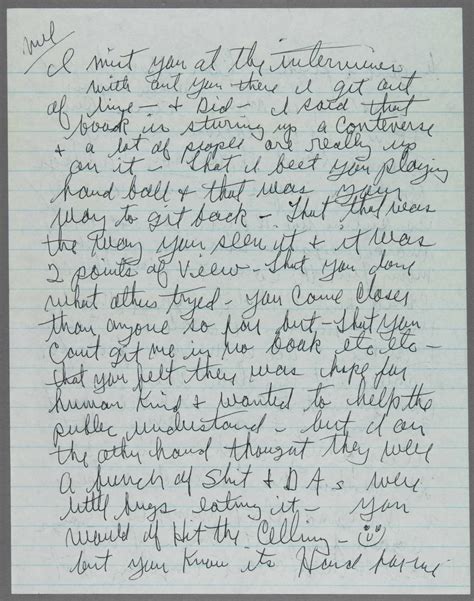 mel
I mist you at the interview
with out you there I get out
of line - & Did - I said that
book is sturing up a Conteverse
& a lot of people are really up
on it - That I beet you playing
hand ball & that was your
way to get back - That that was
the way you seen it & it was
2 points of View - That you done
what others tryed - you come closer
than anyone so far but - That you
Cant get me in no book etc etc -
that you felt they was hope for
human Kind & wanted to help the
public understand - but I on
the other hand thought they were
a bunch of Shit & DAs were
little bugs eating it - you
would of Hit the Celling - ☺
but you know its Hard